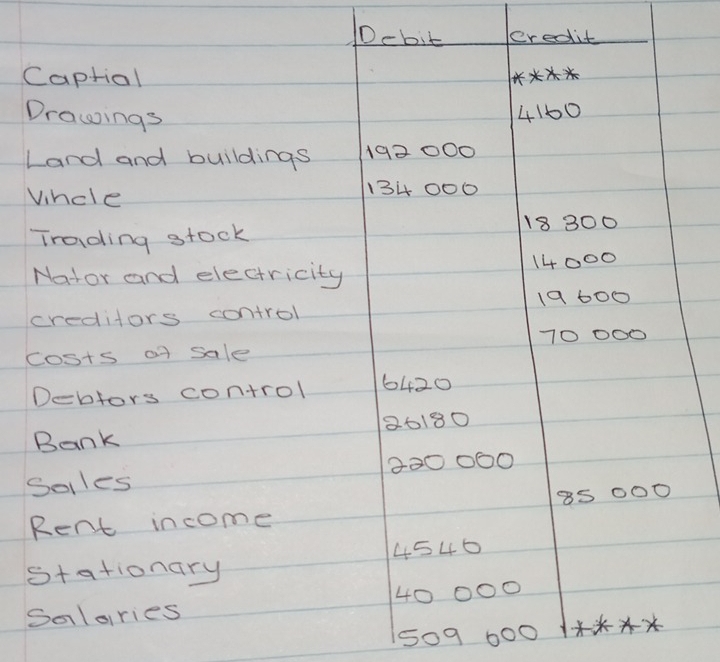 Debit Credit
Captial ****
Drawings 4160
Land and buildings 192 000
Vihcle 134 000
Trading stock 18 300
Nator and electricity 14000
creditors control 19 600
costs of sale 70 000
Debtors control 6420
Bank 26180
Sales 220 000
Rent income 85 000
Stationary 4540
Salaries 40 000
509 600 ****